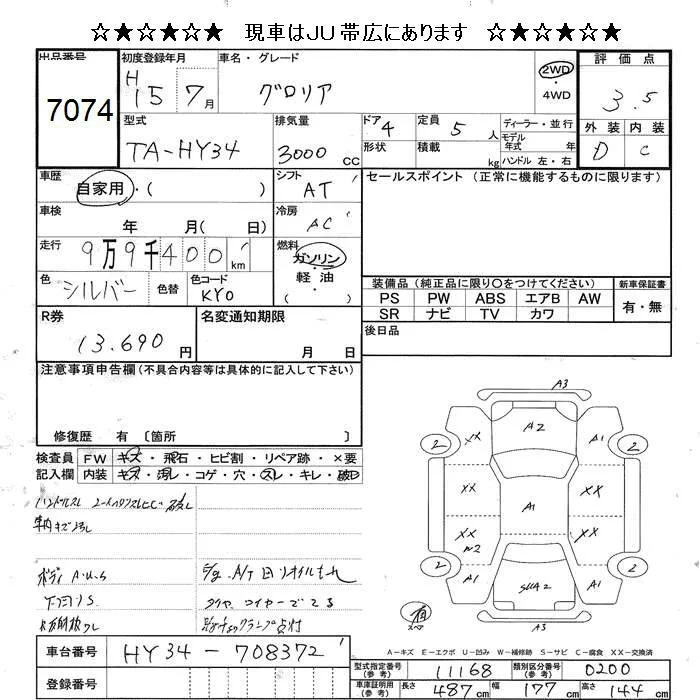 ☆★☆★☆★ 現車はJU帯広にあります ☆★☆★☆★
出品番号
7074
初度登録年月
H 15 7月
車名・グレード
グロリア
2WD
・
4WD
評価点
3.5
外装 内装
D C
型式
TA-HY34
排気量
3000 cc
ドア 4
形状
定員 5 人
積載 kg
ディーラー・並行
モデル
年式 年
ハンドル 左・右
車歴
自家用・( )
シフト
AT
セールスポイント (正常に機能するものに限ります)
車検
年 月( 日)
冷房
AC
走行
9万9千400km
燃料
ガソリン
・
軽油
色
シルバー
色替
色コード
KY0
装備品(純正品に限り○をつけてください)
新車保証書
PS PW ABS エアB AW
SR ナビ TV カワ
有・無
R券
13.690 円
名変通知期限
月 日
後日品
注意事項申告欄(不具合内容等は具体的に記入して下さい)
修復歴 有 〔箇所 〕
検査員 FW キズ・飛石・ヒビ割・リペア跡・×要
記入欄 内装 キズ・汚レ・コゲ・穴・スレ・キレ・破レ
ボディ A.U.S
下回りS
E/g. A/T 回りオイルもれ
タイヤ ワイヤーでてる
A3
A2
XX
A1
2
2
XX
A1
XX
XX
W2
XX
2
2
A1
A1
A3
スペア
A-キズ E-エクボ U-凹み W-補修跡 S-サビ C-腐食 XX-交換済
車台番号
HY34-708372
登録番号
型式指定番号
(参考)
11168
類別区分番号
(参考)
0200
車庫証明用
(参考)
長さ 487cm 幅 177cm 高さ 144cm